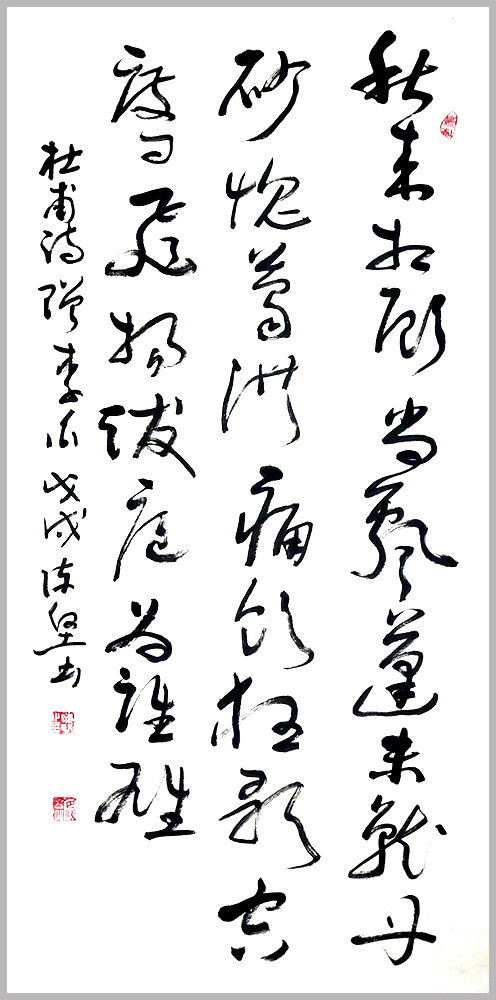 秋来相顾尚飘蓬未就丹
砂愧葛洪痛饮狂歌空
度日飞扬跋扈为谁雄
杜甫诗赠李白戊戌陈坚书